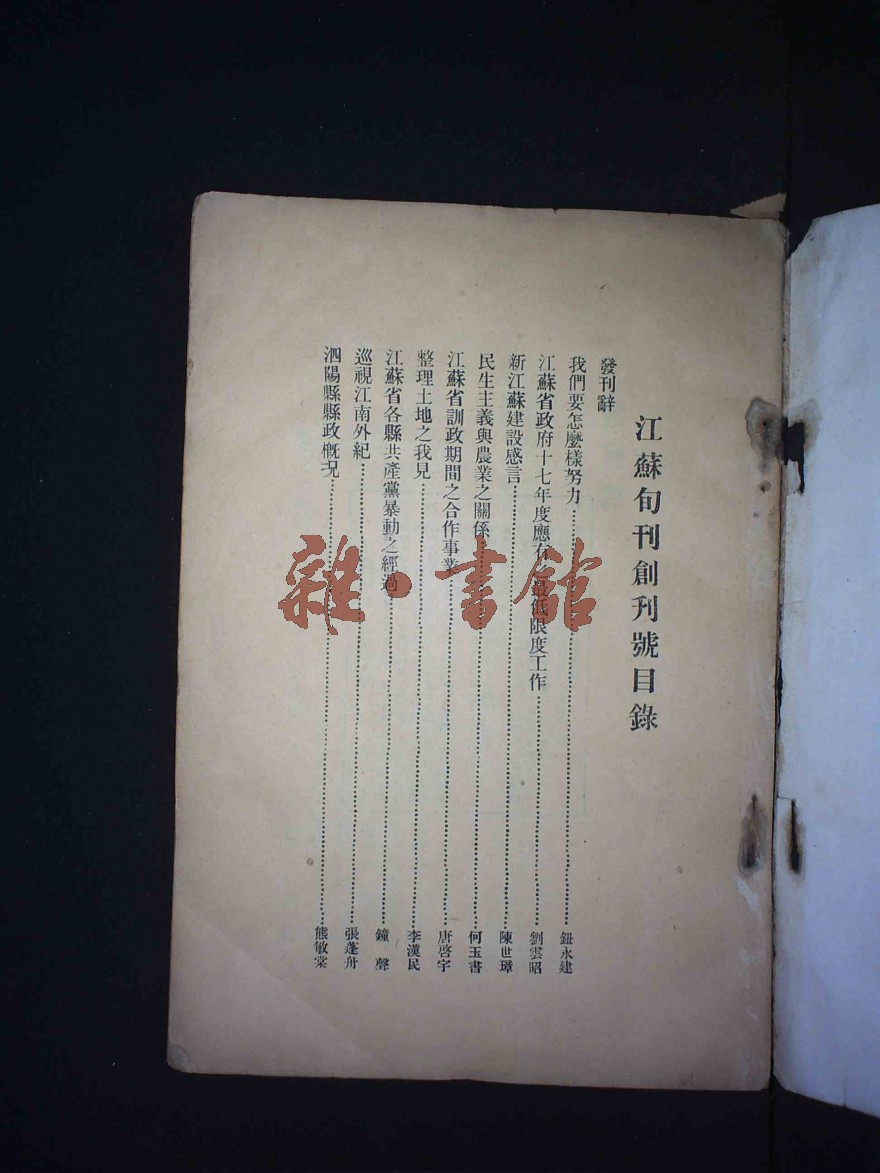 江蘇旬刊創刊號目錄
發刊辭
我們要怎麼樣努力……鈕永建
江蘇省政府十七年度應有之最低限度工作……劉雲昭
新江蘇建設感言……陳世璋
民生主義與農業之關係……何玉書
江蘇省訓政期間之合作事業……唐啓宇
整理土地之我見……李漢民
江蘇省各縣共產黨暴動之經過……鐘聲
巡視江南外紀……張蓬舟
泗陽縣縣政概況……熊敏棠
雜·書館